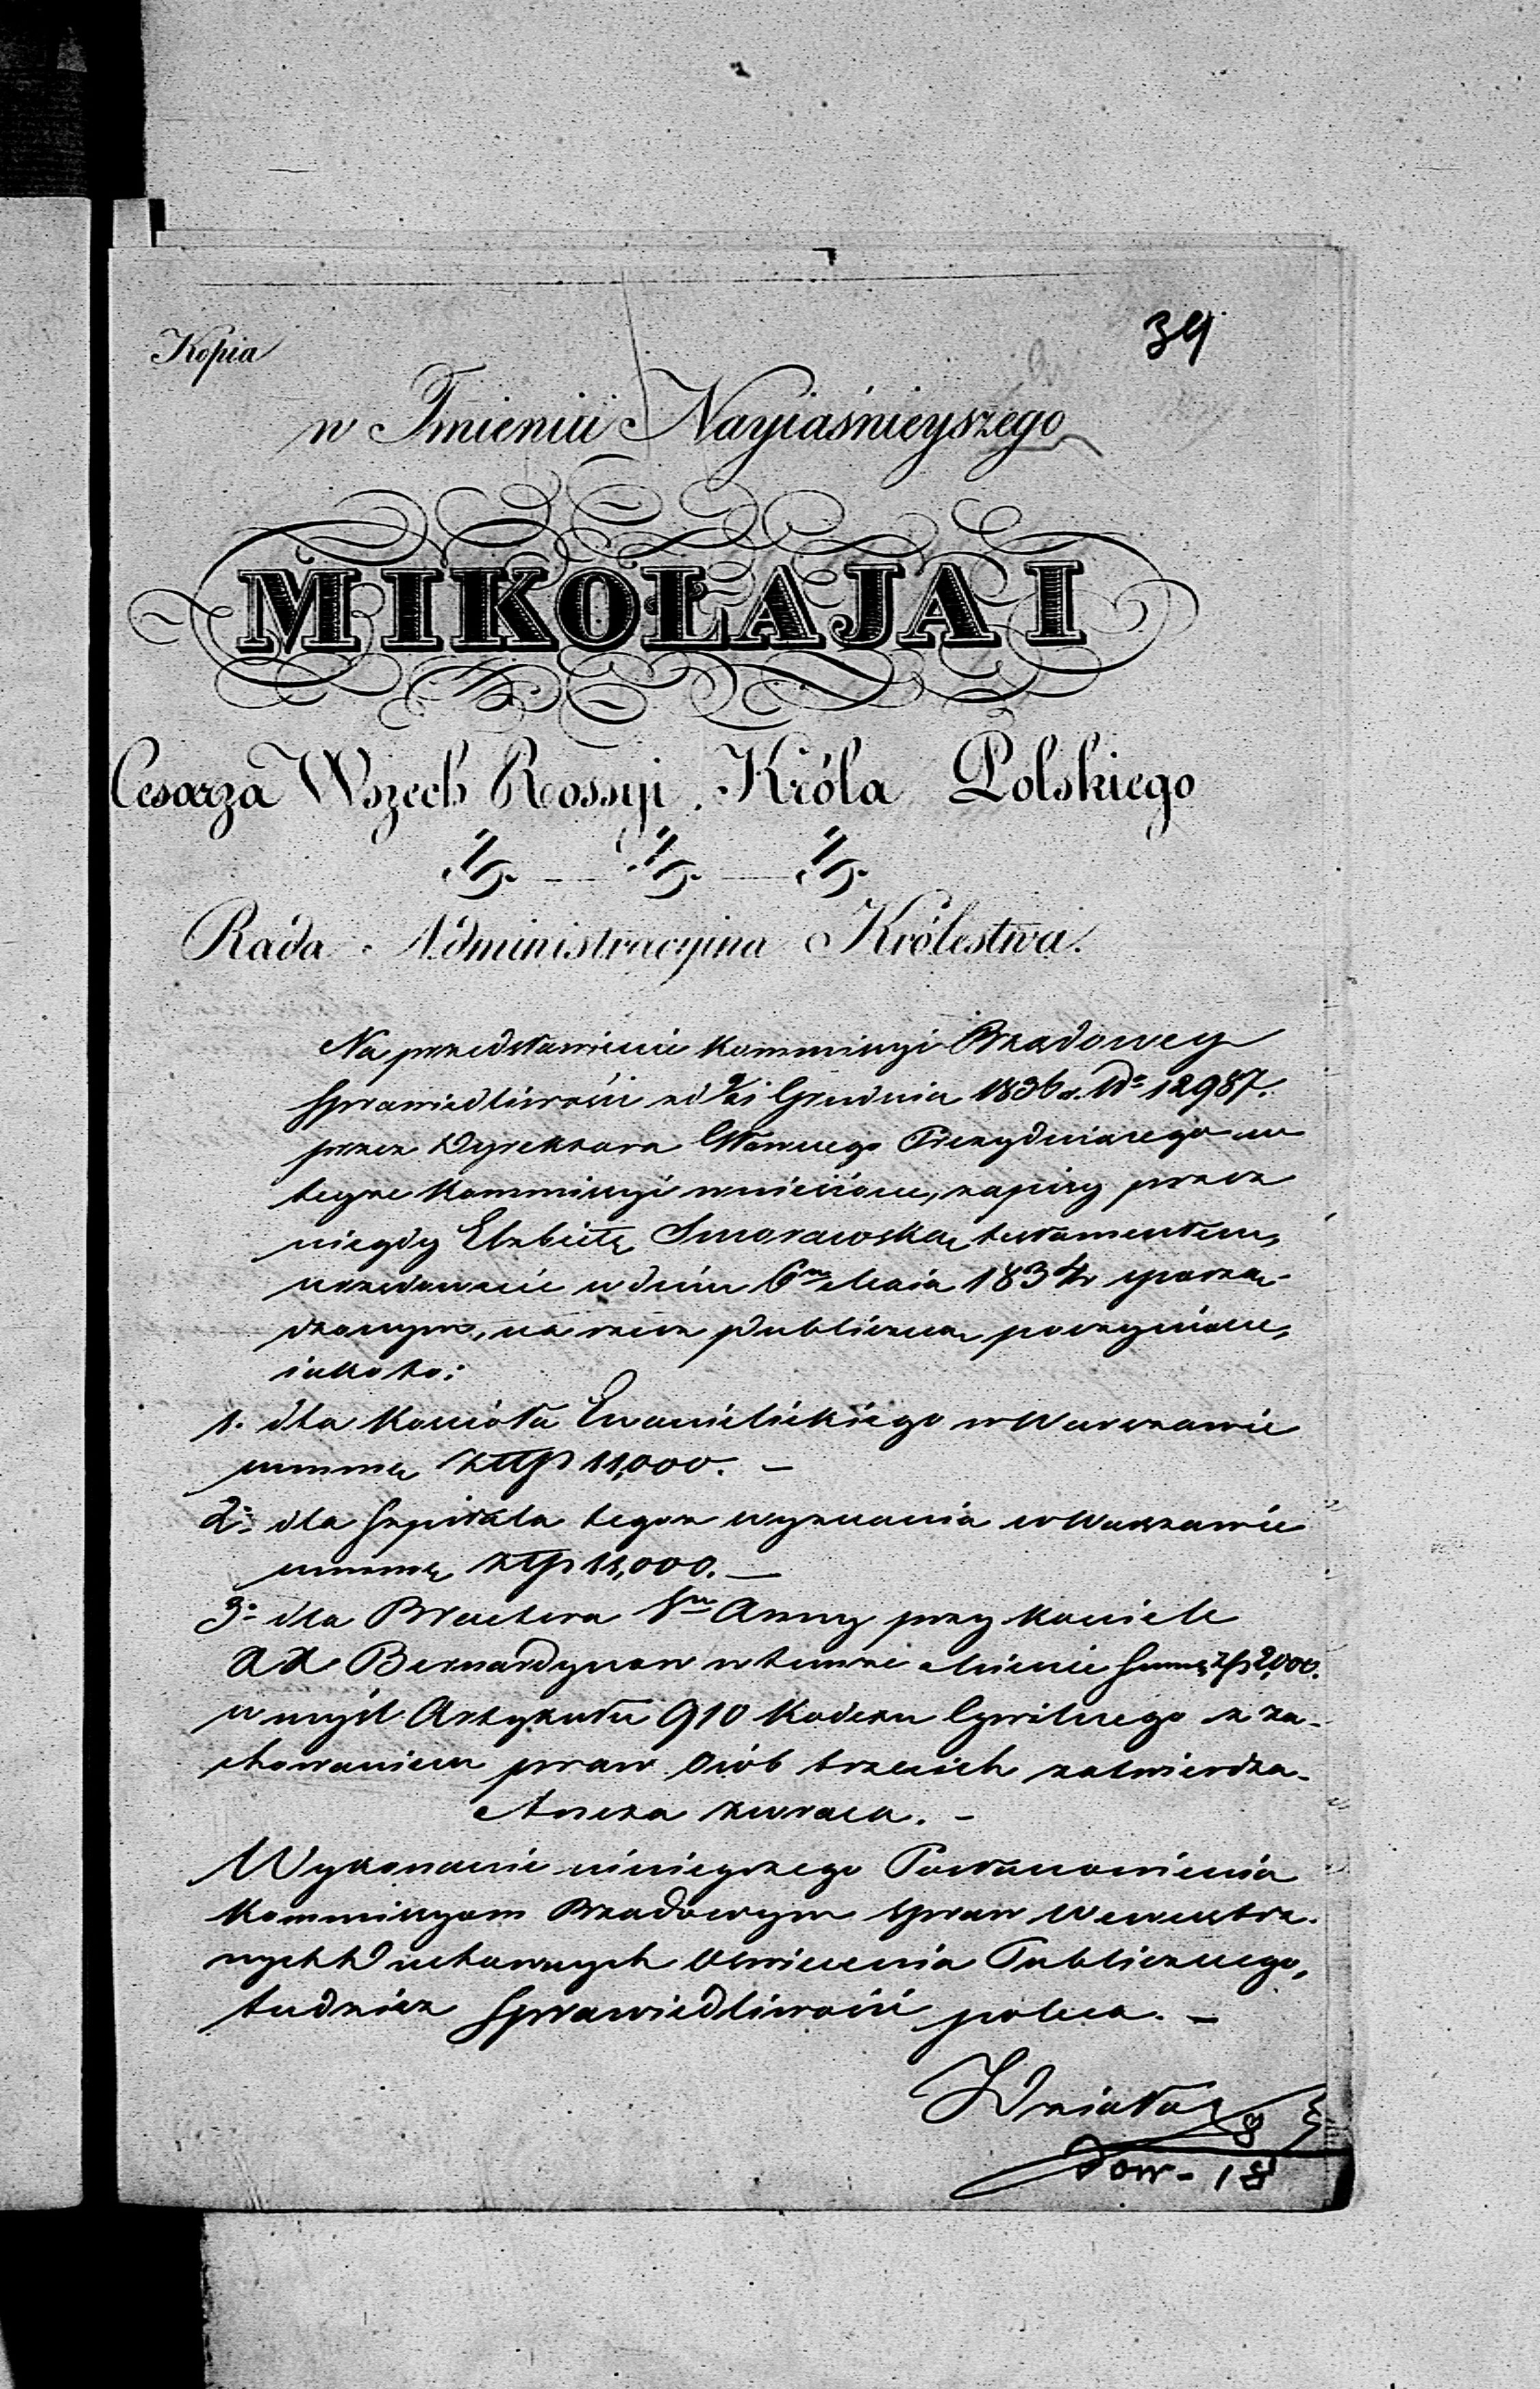 Kopia
34
w Imieniu Nayiaśnieyszego
MIKOŁAJA I
Cesarza Wszech Rossyi, Króla Polskiego
Rada Administracyina Królestwa.
Na przedstawienie Kommissyi Rządowey
Sprawiedliwości z d 9/21 Grudnia 1836 r. No 12987.
przez Dyrektora Głównego Prezyduiącego w
teyże Kommissyi wniesione, zapisy przez
niegdy Elzbietę Smorawską testamentem,
urzędownie w dniu 6m Maia 1834 r sporzą-
dzonym, na rzecz publiczną poczynione,
iako to:
1. dla Kościoła Ewanielickiego w Warszawie
summę złtp 11,000. —
2o dla Szpitala tegoż wyznania w Warszawie
summę złtp 11,000. —
3o dla Bractwa Stej Anny przy Kościele
XX Bernardynow w temże Mieście Summę złp 2,000.
w myśl Artykułu 910 Kodexu Cywilnego z za-
chowaniem praw osób trzecich zatwierdza.
Annexa zwraca. —
Wykonanie ninieyszego Postanowienia
Kommissyom Rządowym Spraw Wewnętrz-
nych Duchownych Oświecenia Publicznego,
tudzież Sprawiedliwości poleca. —
Działo
18